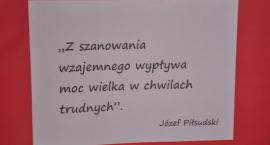 „Z szanowania
wzajemnego wypływa
moc wielka w chwilach
trudnych”.
Józef Piłsudski